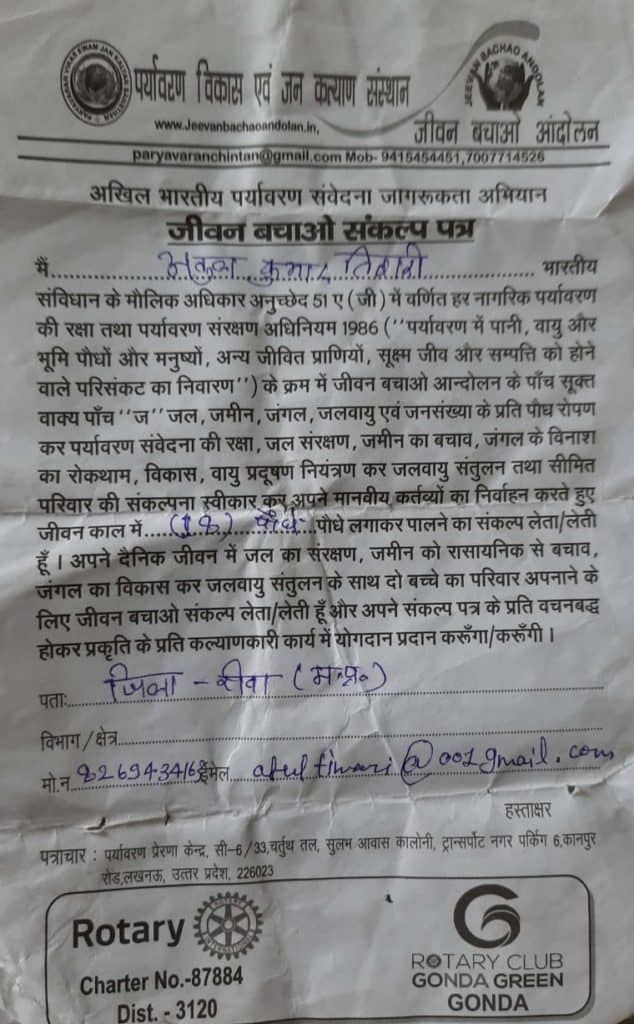 पर्यावरण विकास एवं जन कल्याण संस्थान
JEEVAN BACHAO ANDOLAN
www.Jeevanbachaoandolan.in,
जीवन बचाओ आंदोलन
paryavaranchintan@gmail.com Mob- 9415454451,7007714526
अखिल भारतीय पर्यावरण संवेदना जागरूकता अभियान
जीवन बचाओ संकल्प पत्र
मैं.....कुमार तिवारी.....भारतीय
संविधान के मौलिक अधिकार अनुच्छेद 51 ए (जी) में वर्णित हर नागरिक पर्यावरण
की रक्षा तथा पर्यावरण संरक्षण अधिनियम 1986 (''पर्यावरण में पानी, वायु और
भूमि पौधों और मनुष्यों, अन्य जीवित प्राणियों, सूक्ष्म जीव और सम्पत्ति को होने
वाले परिसंकट का निवारण'') के क्रम में जीवन बचाओ आन्दोलन के पाँच सूक्त
वाक्य पाँच ''ज'' जल, जमीन, जंगल, जलवायु एवं जनसंख्या के प्रति पौध रोपण
कर पर्यावरण संवेदना की रक्षा, जल संरक्षण, जमीन का बचाव, जंगल के विनाश
का रोकथाम, विकास, वायु प्रदूषण नियंत्रण कर जलवायु संतुलन तथा सीमित
परिवार की संकल्पना स्वीकार कर अपने मानवीय कर्तव्यों का निर्वाहन करते हुए
जीवन काल में.....पौधे.....पौधे लगाकर पालने का संकल्प लेता/लेती
हूँ । अपने दैनिक जीवन में जल का संरक्षण, जमीन को रासायनिक से बचाव,
जंगल का विकास कर जलवायु संतुलन के साथ दो बच्चे का परिवार अपनाने के
लिए जीवन बचाओ संकल्प लेता/लेती हूँ और अपने संकल्प पत्र के प्रति वचनबद्ध
होकर प्रकृति के प्रति कल्याणकारी कार्य में योगदान प्रदान करूँगा/करूँगी ।
पताः जिला - रीवा (म०प्र०)
विभाग/क्षेत्र
मो.न. ईमेल atul tiwari@001gmail.com
हस्ताक्षर
पत्राचार : पर्यावरण प्रेरणा केन्द्र, सी-6/33,चर्तुथ तल, सुलभ आवास कालोनी, ट्रान्सर्पोट नगर पर्किंग 6,कानपुर
रोड,लखनऊ, उत्तर प्रदेश, 226023
Rotary
Charter No.-87884
Dist. - 3120
ROTARY CLUB
GONDA GREEN
GONDA